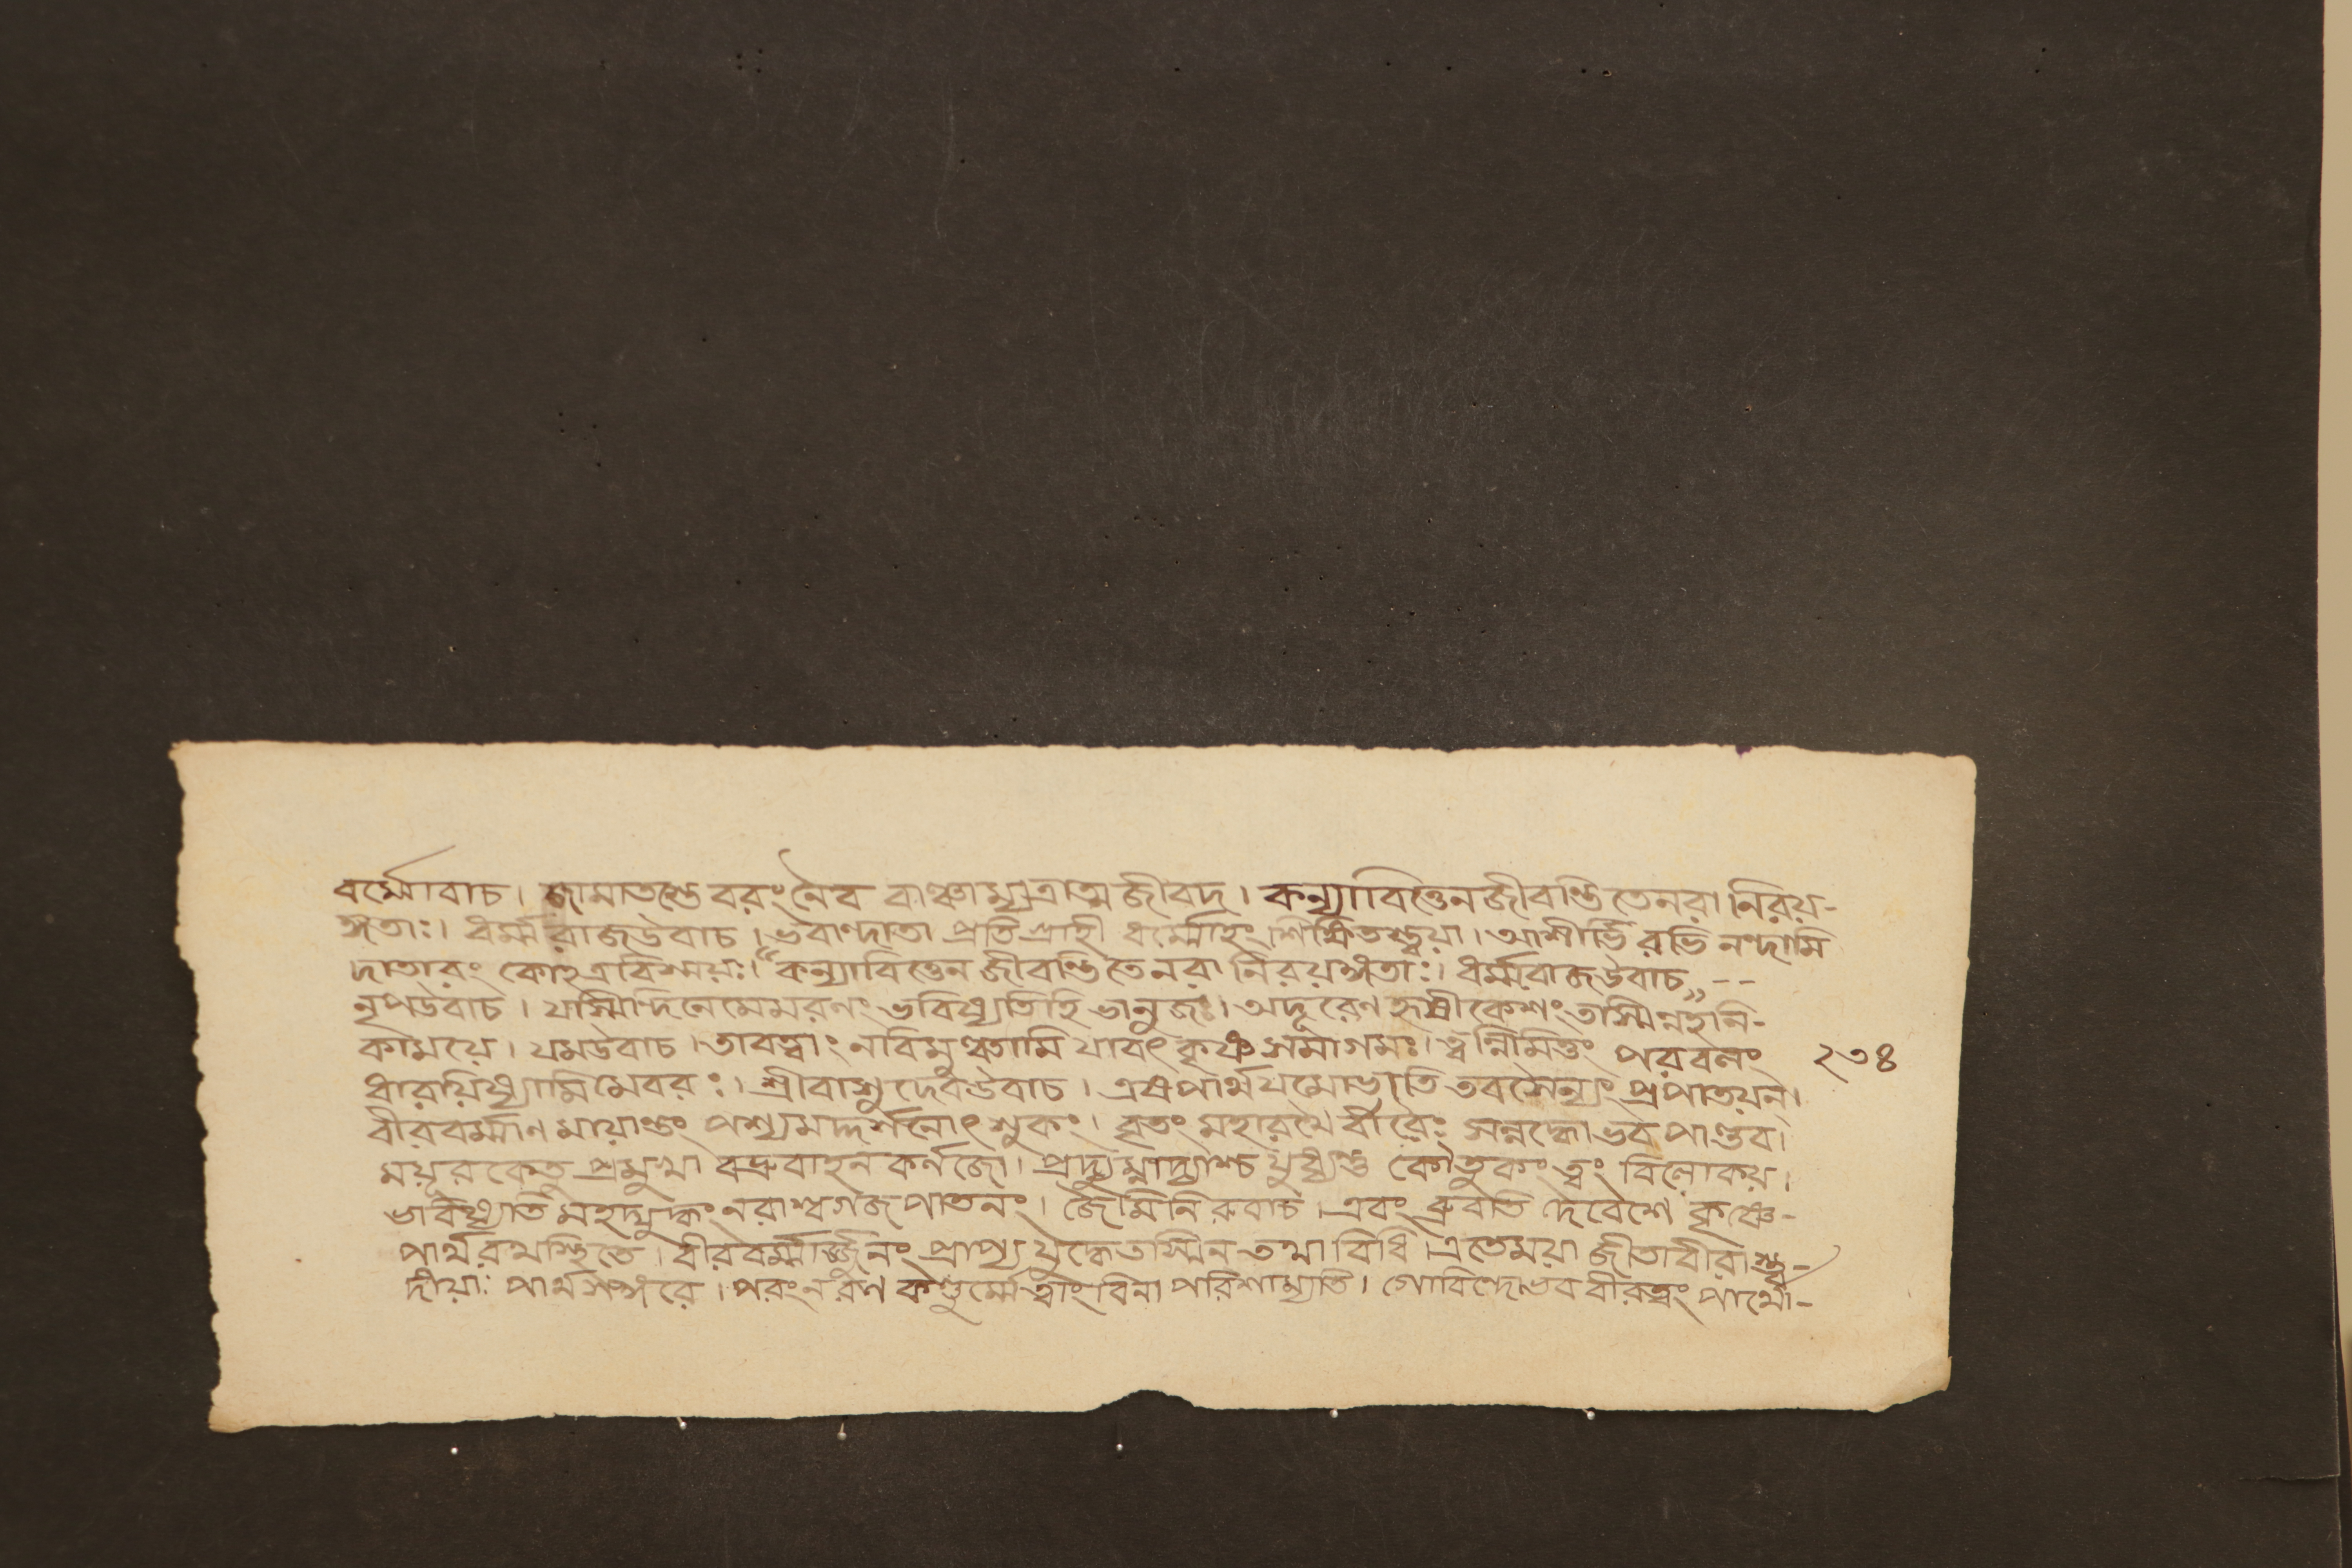 বর্ম্মোবাচ। জামাতস্তে বরং নৈব বাঞ্ছাম্যত্রাত্ম জীবদ। কন্যাবিত্তেন জীবন্তি তে নরা নিরয়-
ঙ্গতাঃ। ধর্ম্মরাজউবাচ। ভবান্দাতা প্রতিগ্রাহী ধর্ম্মোহং শিক্ষিতস্ত্বয়া। আশীর্ভিরভি নন্দামি
দাতারং কোহত্রবিস্ময়ঃ। “কন্যাবিত্তেন জীবন্তি তে নরা নিরয়ঙ্গতাঃ। ধর্ম্মরাজউবাচ„--
নৃপউবাচ। যস্মিন্দিনে মে মরণং ভবিষ্যতি হি ভানুজঃ। অদূরেণ হৃষীকেশং তস্মিন্নহনি-
কাময়ে। যমউবাচ। তাবত্ত্বাং নবিমুঞ্চামি যাবৎ কৃষ্ণ সমাগমঃ। ত্বন্নিমিত্তং পরবলং ২৩৪
ধারয়িষ্যামি মে বরঃ। শ্রীবাসুদেবউবাচ। এষ পার্থ যমোভাতি তবসৈন্যং প্রপাতয়ন্।
বীরবর্ম্মাণমায়ান্তং পশ্য মদ্দর্শনোৎশুকং। বৃতং মহারথৈ বীরৈঃ সন্নদ্ধো ভব পাণ্ডব।
ময়ূরকেতু প্রমুখা বভ্রুবাহন কর্ণজৌ। প্রদ্যুম্নাদ্যাশ্চ যুধ্যন্তু কৌতুকং ত্বং বিলোকয়।
ভবিষ্যতি মহদ্যুদ্ধং নরাশ্বগজ পাতনং। জৈমিনিরুবাচ। এবং ব্রুবতি দেবেশে কৃষ্ণে-
পার্থ রথস্থিতে। বীরবর্ম্মার্জ্জুনং প্রাপ্য যুদ্ধে তস্মিন তথা বিধি। এতে ময়া জীতা বীরাস্ত্ব-
দীয়াঃ পার্থ সঙ্গরে। পরং ন রণ কণ্ডুর্ম্মে ত্বাং বিনা পরিশাম্যতি। গোবিন্দো ভব বীরত্বং পার্থো-